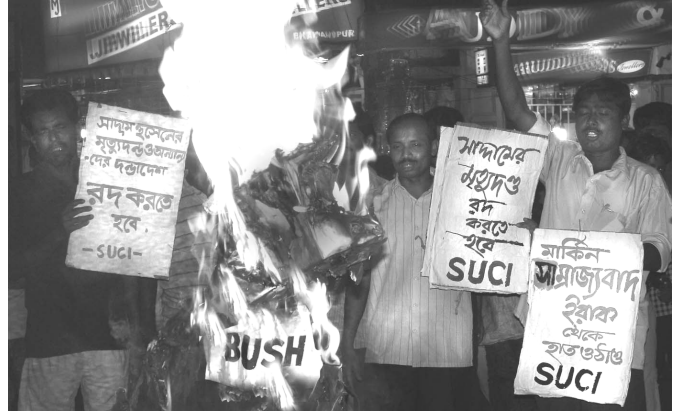 JEWELLER
সাদ্দাম হুসেনের
মৃত্যুদন্ড ও অন্যান্য
দের দন্ডাদেশ
রদ করতে
হবে.
-SUCI-
BUSH
সাদ্দামের
মৃত্যুদণ্ড
রদ
করতে
হবে
SUCI
মার্কিন
সাম্রাজ্যবাদ
ইরাক
থেকে
হাত ওঠাও
SUCI